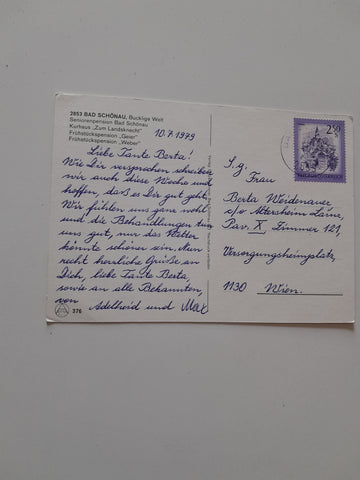 2853 BAD SCHÖNAU, Bucklige Welt
Seniorenpension Bad Schönau
Kurhaus „Zum Landsknecht"
Frühstückspension „Geier"
Frühstückspension „Weber"
10.7.1979
Liebe Tante Berta!
Wie Dir versprochen schreiben
wir auch diese Woche und
hoffen, daß es Dir gut geht.
Wir fühlen uns ganz wohl
und die Behandlungen tun
uns gut, nur das Wetter
könnte schöner sein. Nun
recht herzliche Grüße an
Dich, liebe Tante Berta,
sowie an alle Bekannten,
von Adelheid und Max
376
2.50
S.g. Frau
Berta Weidenauer
c/o Altersheim Lainz,
Pav. X Zimmer 121,
Versorgungsheimplatz,
1130 Wien.